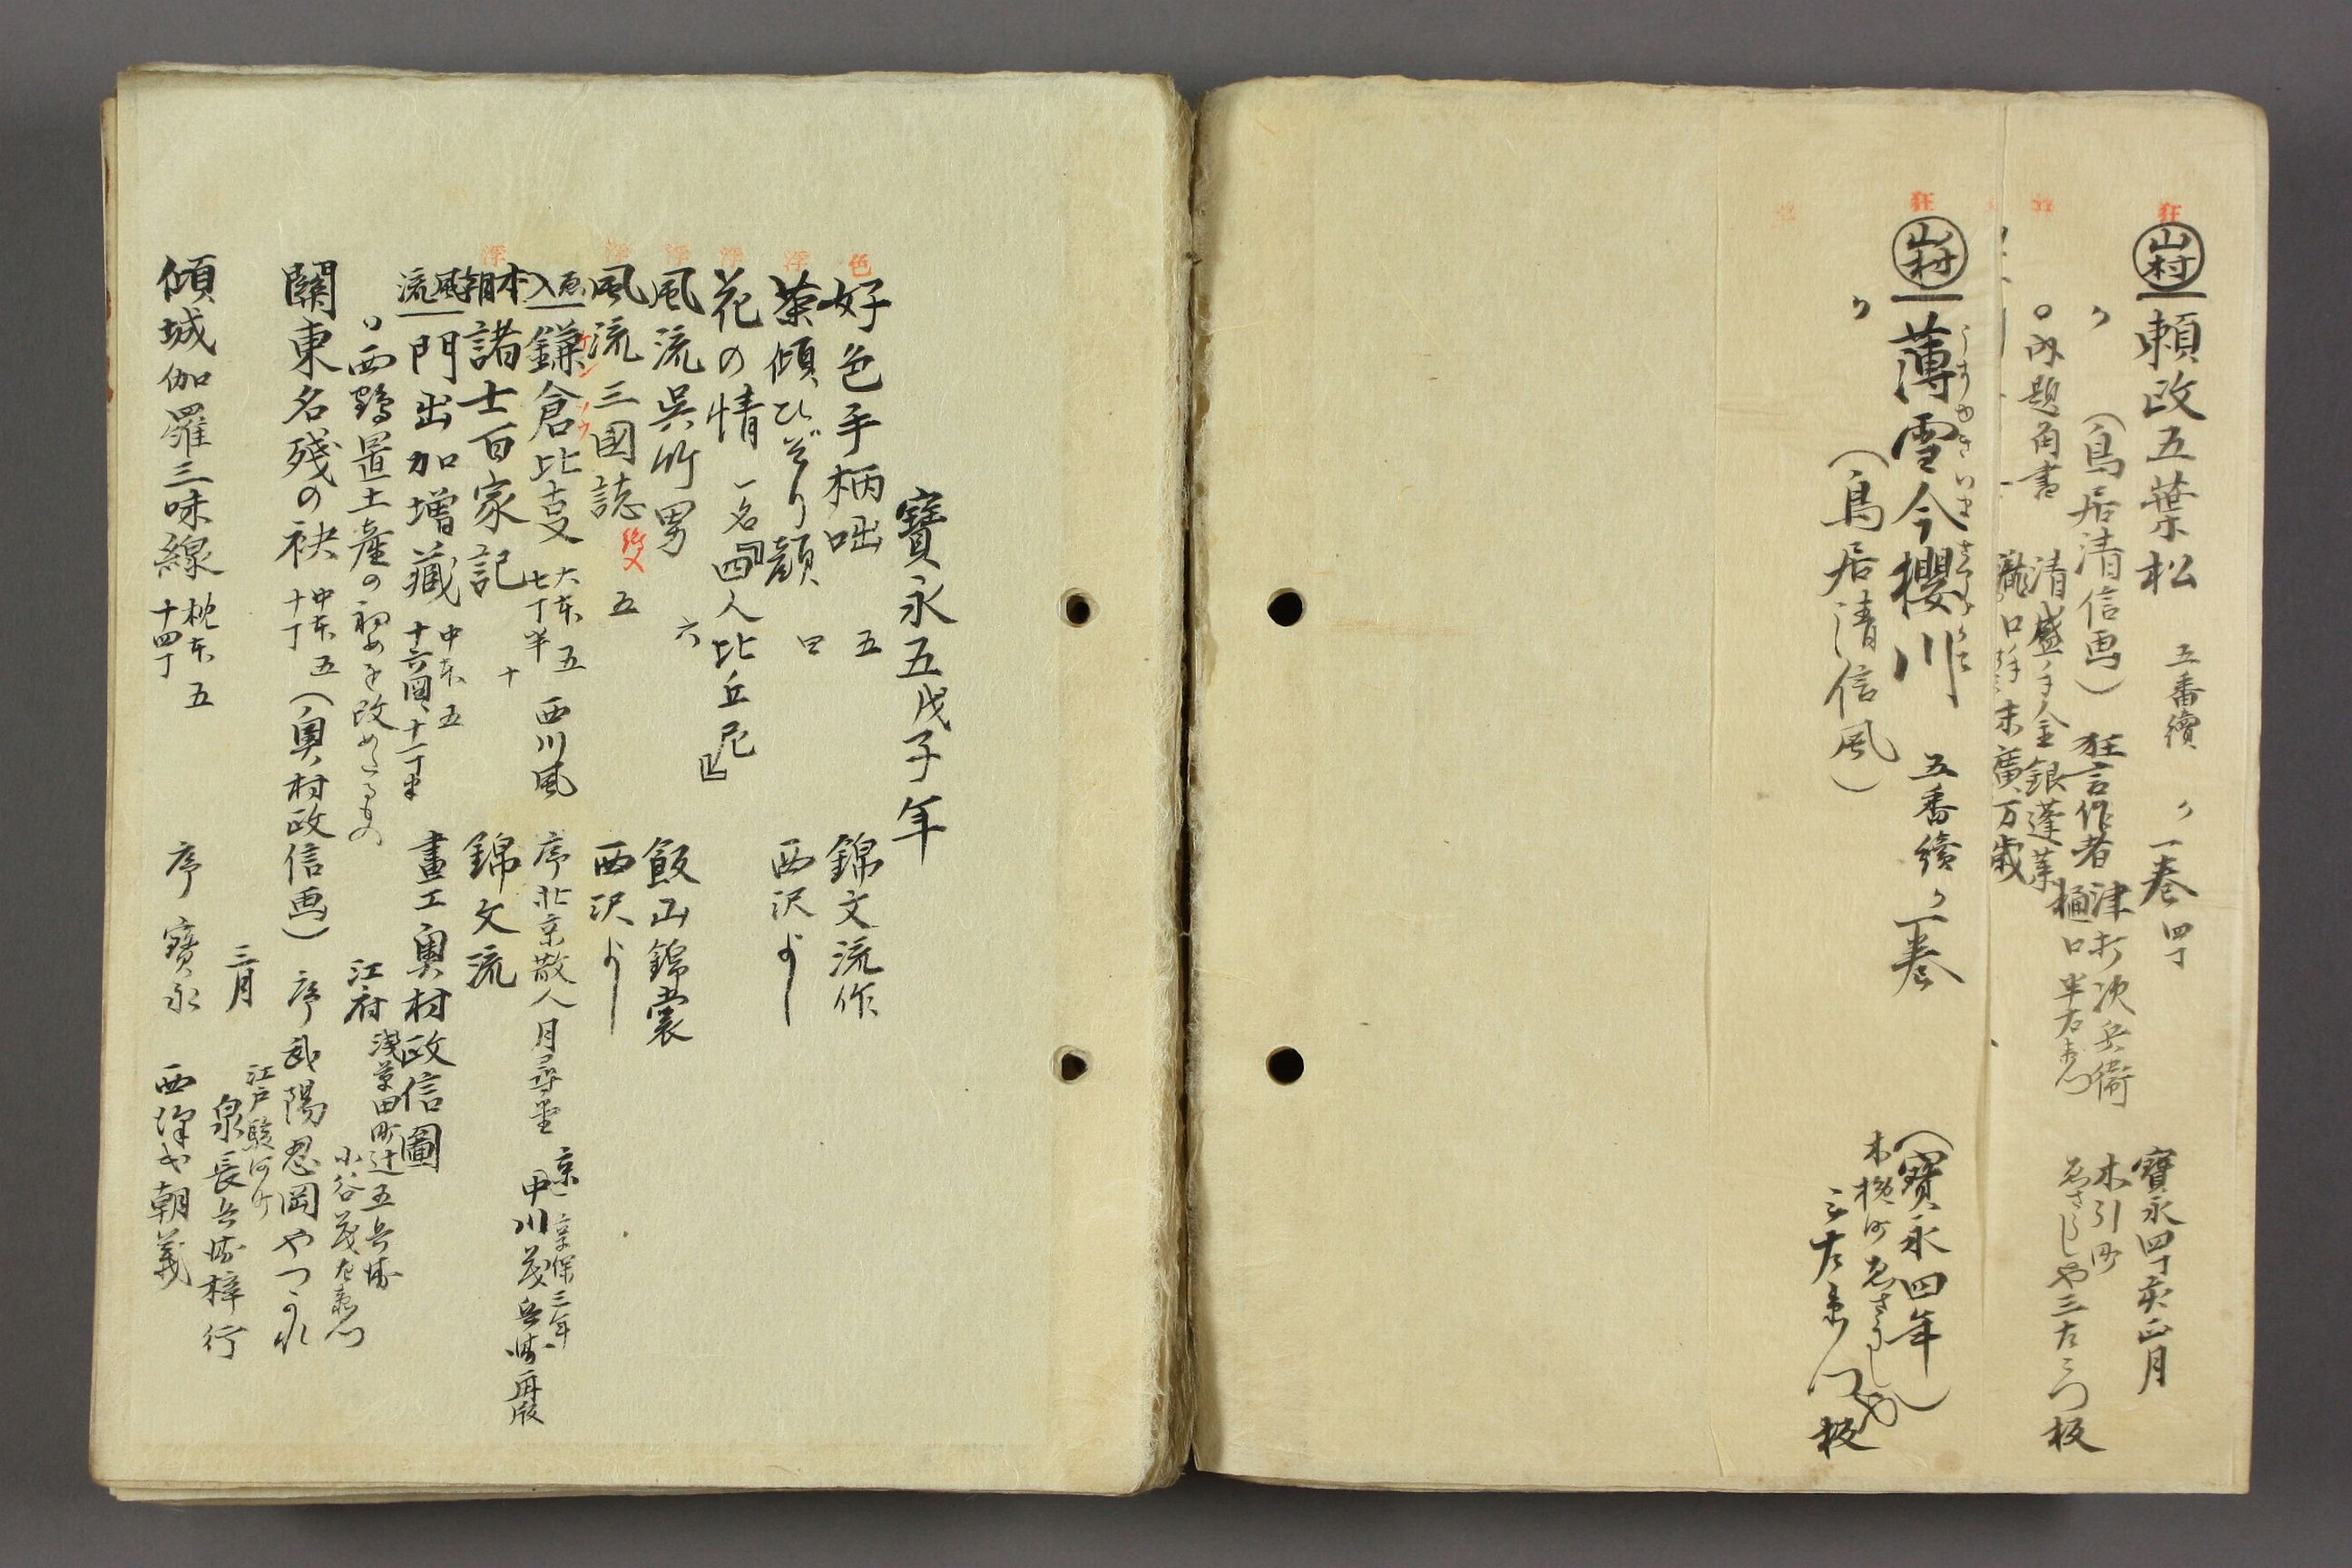 狂
山村
頼政五葉松 五番續 〃一巻 四丁
寶永四丁亥正月
〃 (鳥居清信画) 狂言作者 津打次兵衛
樋口半右衛門
木引町
ゑさうしや三左衛門 板
〇内題角書 清盛ノ手ノ金銀蓬莱
瀧口ノ末廣万歳
狂
山村
薄雪今櫻川 五番續 〃一巻
うすゆきいまさくらかは
(寶永四年)
木挽町ゑさうしや
三左衛門 板
〃 (鳥居清信風)
寶永五戊子年
色 好色手柄咄 五 錦文流作
浮 茶傾ひぞり顔 四 西沢よし
浮 花の情 一名『四人比丘尼』
浮 風流呉竹男 六 飯山錦裳
浮 風流三國誌 五 西沢よし
絵入 鎌倉比事 大本 五 七丁半 西川風 序北京散人月尋堂 京 享保三年 中川茂兵衛再版
ケン ソウ
浮 本朝諸士百家記 十 錦文流
風流門出加増藏 中本 五 十六圖、十一丁半 畫工奥村政信圖
〃西鶴置土産の初めを改めたるもの 江府 浅草田町辻五兵衛
小谷茂左衛門
關東名殘の袂 中本 五 十丁 (奥村政信画) 序 武陽忍岡やつがれ
三月 江戸駿河町
泉長兵衛梓行
傾城伽羅三味線 枕本 五 十四丁 序 寶永 西澤氏朝義